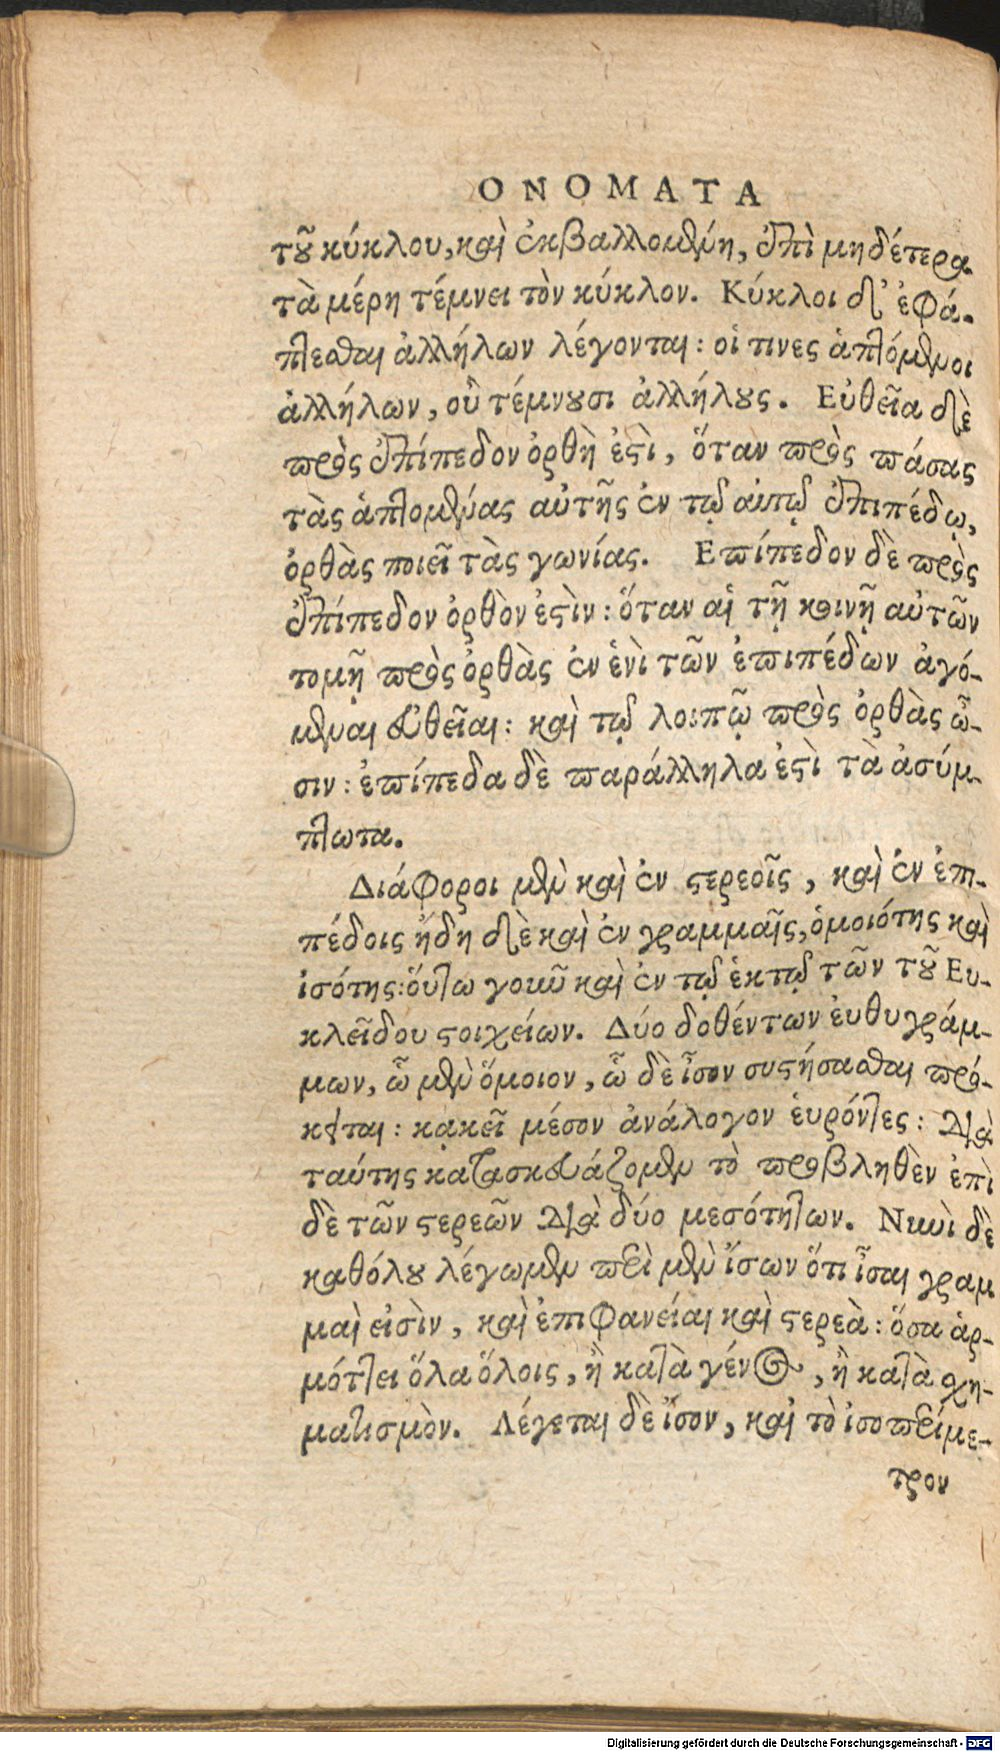 ΟΝΟΜΑΤΑ
τοῦ κύκλου, καὶ ἐκβαλλομένη, ἐπὶ μηδέτερα
τὰ μέρη τέμνει τὸν κύκλον. Κύκλοι δ' ἐφά-
πτεσθαι ἀλλήλων λέγονται: οἵ τινες ἁπτόμενοι
ἀλλήλων, οὐ τέμνουσι ἀλλήλους. Εὐθεῖα δὲ
πρὸς ἐπίπεδον ὀρθὴ ἐστὶ, ὅταν πρὸς πάσας
τὰς ἁπτομένας αὐτῆς ἐν τῷ αὐτῷ ἐπιπέδῳ,
ὀρθὰς ποιεῖ τὰς γωνίας. Επίπεδον δὲ πρὸς
ἐπίπεδον ὀρθὸν ἐστὶν: ὅταν αἱ τῇ κοινῇ αὐτῶν
τομῇ πρὸς ὀρθὰς ἐν ἑνὶ τῶν ἐπιπέδων ἀγό-
μεναι εὐθεῖαι: καὶ τῷ λοιπῷ πρὸς ὀρθὰς ὦ-
σιν: ἐπίπεδα δὲ παράλληλα ἐστὶ τὰ ἀσύμ-
πτωτα.
Διάφοροι μὲν καὶ ἐν στερεοῖς, καὶ ἐν ἐπι-
πέδοις ἤδη δὲ καὶ ἐν γραμμαῖς, ὁμοιότης καὶ
ἰσότης: οὕτω γοῦν καὶ ἐν τῷ ἑκτῷ τῶν τοῦ Ευ-
κλεῖδου στοιχείων. Δύο δοθέντων ἐυθυγράμ-
μων, ὧ μὲν ὅμοιον, ὧ δὲ ἶσον συστήσασθαι πρό-
κειται: κᾀκεῖ μέσον ἀνάλογον ἑυρόντες: διὰ
ταύτης κατασκευάζομεν τὸ προβληθὲν ἐπὶ
δὲ τῶν στερεῶν διὰ δύο μεσότητων. Νυνὶ δὲ
καθόλου λέγωμεν περὶ μὲν ἴσων ὅτι ἶσαι γραμ
μαὶ εἰσὶν, καὶ ἐπιφανείαι καὶ στερεὰ: ὅσα ἁρ-
μόττει ὅλα ὅλοις, ἢ κατὰ γένος, ἢ κατὰ σχη-
ματισμὸν. Λέγεται δὲ ἴσον, καὶ τὸ ἰσοπερίμε-
τρον
Digitalisierung gefördert durch die Deutsche Forschungsgemeinschaft - DFG